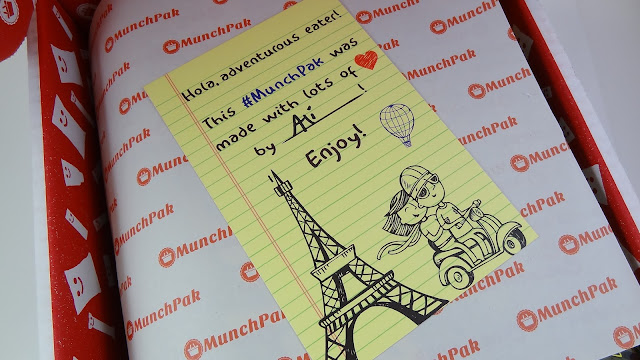 MunchPak
MunchPak
MunchPak
MunchPak
MunchPak
Hola, adventurous eater!
This #MunchPak was
made with lots of
by Ali !
Enjoy!
MunchPak
MunchPak
MunchPak
MunchPak
MunchPak
MunchPak
MunchPak
MunchPak
MunchPak